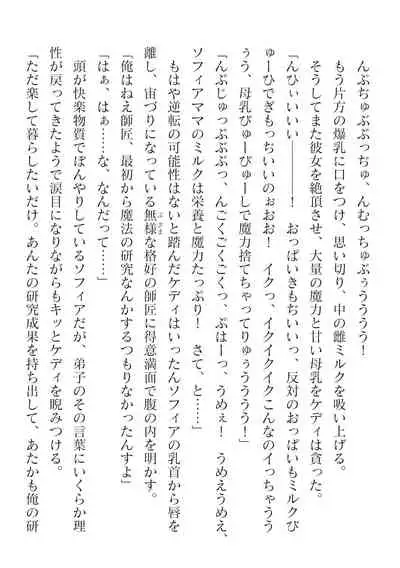 んぶちゅぶぶっちゅ、んむっちゅぶぅうううう！
もう片方の爆乳に口をつけ、思い切り、中の雌ミルクを吸い上げる。
そうしてまた彼女を絶頂させ、大量の魔力と甘い母乳をケディは貪った。
「んひぃいいい――――！　おっぱいきもちいいっ、反対のおっぱいもミルクび
ゅーひでぎもっちいいのぉおお！　イクっ、イクイクイクこんなのイっちゃうう
ぅう、母乳びゅーびゅーしで魔力捨てちゃってりゅぅうううう！」
「んぷじゅっっぷぷぷっ、んごくごくごくっ、ぷはーっ、うめぇ！　うめえうめえ、
ソフィアママのミルクは栄養と魔力たっぷり！　さて、と……」
もはや逆転の可能性はないと踏んだケディはいったんソフィアの乳首から唇を
離し、宙づりになっている無様な格好の師匠に得意満面で腹の内を明かす。
「俺はねえ師匠、最初から魔法の研究なんかするつもりなかったんすよ」
「はぁ、はぁ……な、なんだって……」
頭が快楽物質でぼんやりしているソフィアだが、弟子のその言葉にいくらか理
性が戻ってきたようで涙目になりながらもキッとケディを睨みつける。
「ただ楽して暮らしたいだけ。あんたの研究成果を持ち出して、あたかも俺の研